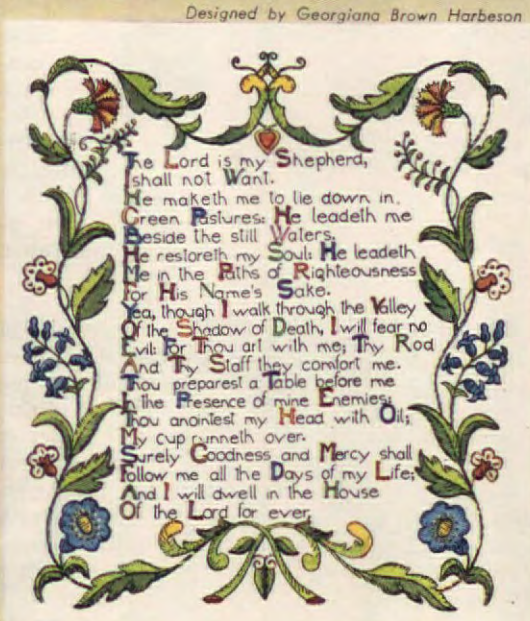 Designed by Georgiana Brown Harbeson
The Lord is my Shepherd,
I shall not Want.
He maketh me to lie down in
Green Pastures: He leadeth me
Beside the still Waters.
He restoreth my Soul: He leadeth
Me in the Paths of Righteousness
For His Name's Sake.
Yea, though I walk through the Valley
Of the Shadow of Death, I will fear no
Evil: For Thou art with me; Thy Rod
And Thy Staff they comfort me.
Thou preparest a Table before me
In the Presence of mine Enemies:
Thou anointest my Head with Oil;
My cup runneth over.
Surely Goodness and Mercy shall
Follow me all the Days of my Life;
And I will dwell in the House
Of the Lord for ever.